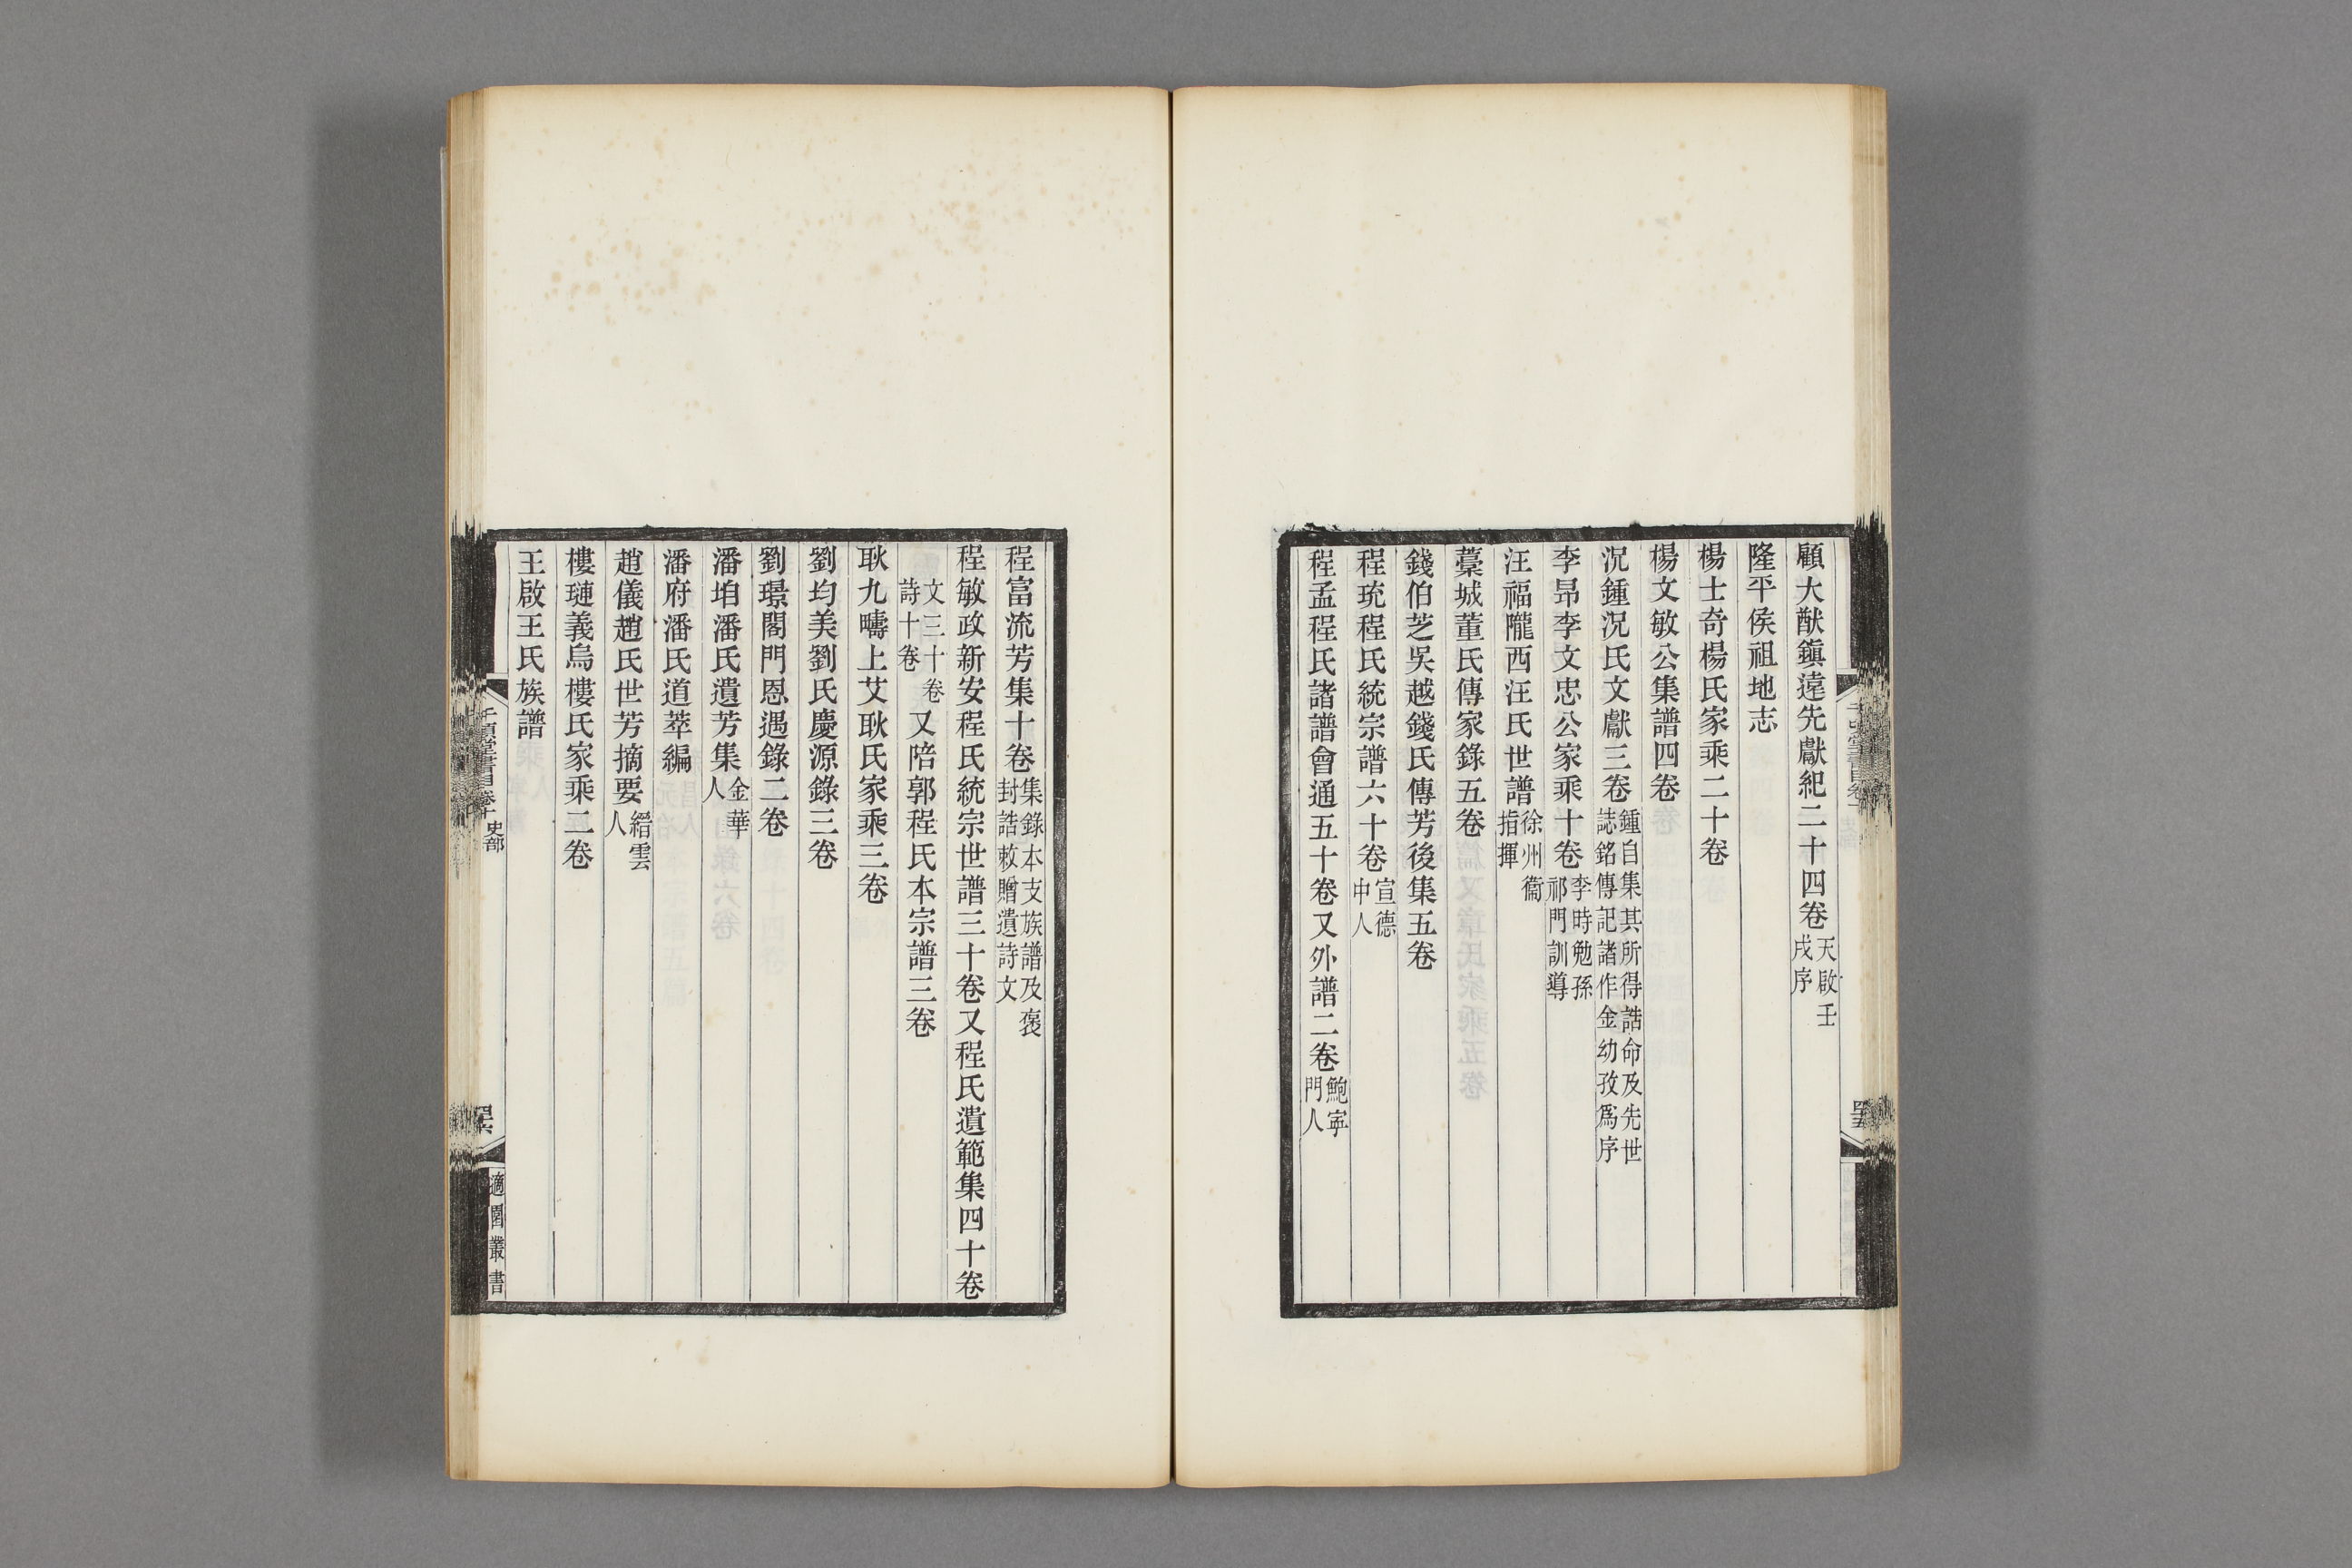 顧大猷鎭遠先獻紀二十四卷天啟壬戌序
隆平侯祖地志
楊士奇楊氏家乘二十卷
楊文敏公集譜四卷
況鍾況氏文獻三卷鍾自集其所得誥命及先世誌銘傳記諸作金幼孜爲序
李昂李文忠公家乘十卷李時勉孫祁門訓導
汪福隴西汪氏世譜徐州衞指揮
藁城董氏傳家錄五卷
錢伯芝吳越錢氏傳芳後集五卷
程珫程氏統宗譜六十卷宣德中人
程孟程氏諸譜會通五十卷又外譜二卷鮑寧門人
程富流芳集十卷集錄本支族譜及褒封誥敕贈遺詩文
程敏政新安程氏統宗世譜三十卷又程氏遺範集四十卷
文三十卷詩十卷又陪郭程氏本宗譜三卷
耿九疇上艾耿氏家乘三卷
劉均美劉氏慶源錄三卷
劉璟閣門恩遇錄二卷
潘垍潘氏遺芳集金華人
潘府潘氏道萃編
趙儀趙氏世芳摘要縉雲人
樓璉義烏樓氏家乘二卷
王啟王氏族譜
千頃堂書目卷十 史部
四十六
適園叢書